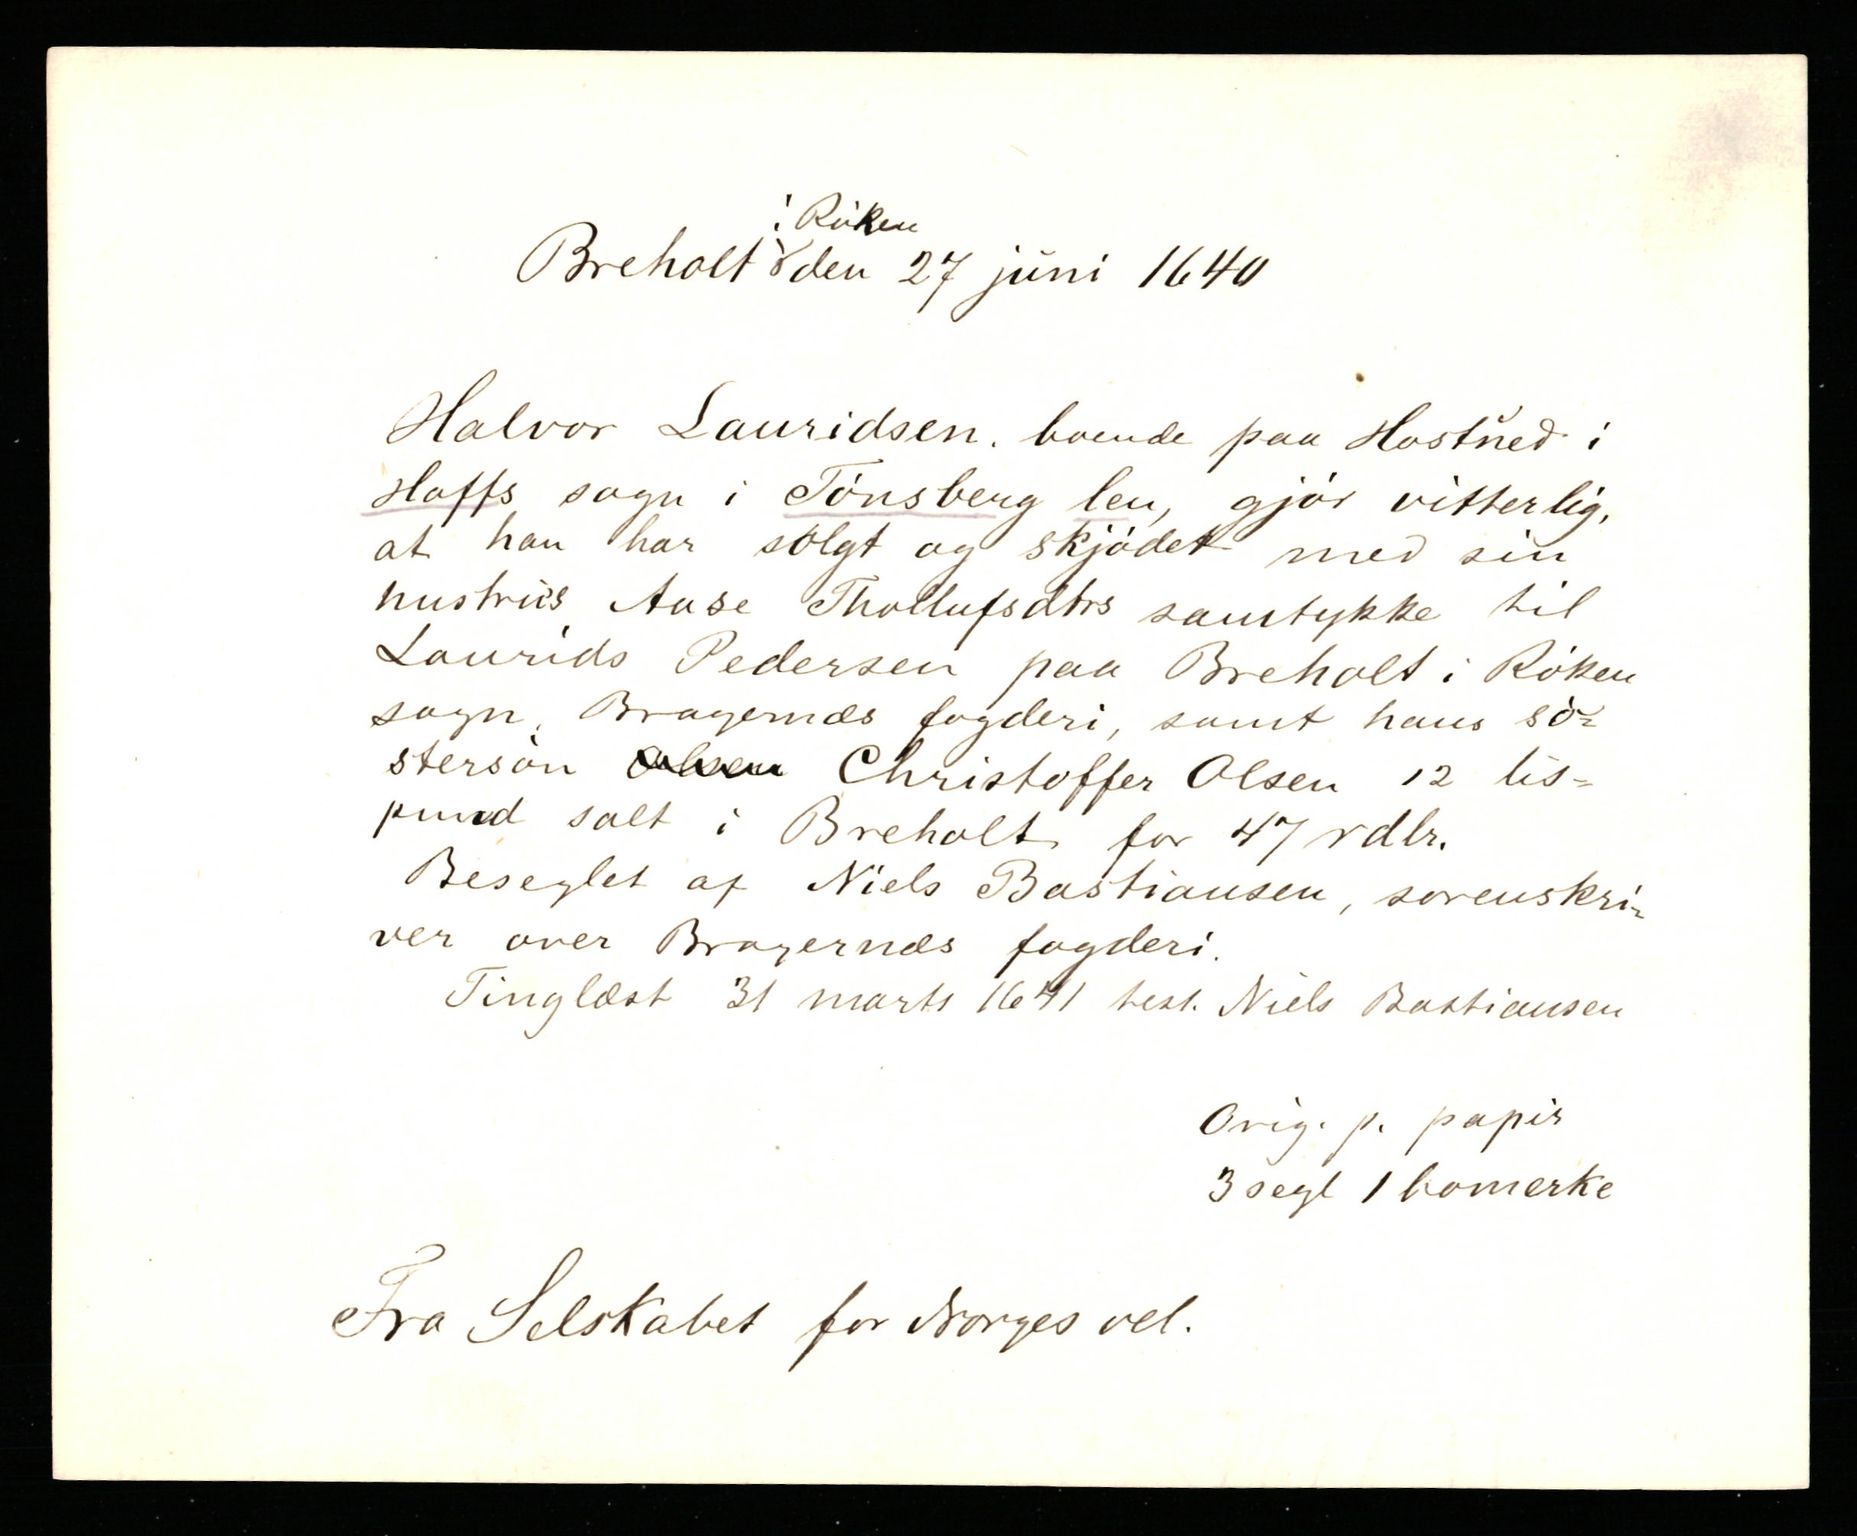 Breholt i Röken den 27 juni 1640
Halvor Lauridsen. boende paa Hostued i
Hoffs sogn i Tönsberg len, gjör vitterlig,
at han har solgt og skjödet med sin
hustrus Aase Thollufsdtrs samtykke til
Laurids Pedersen paa Breholt i Röken
sogn, Bragernæs fogderi, samt hans sö-
stersön Olsen Christoffer Olsen 12 lis-
pund salt i Breholt for 47 rdlr.
Beseglet af Niels Bastiansen, sorenskri-
ver over Bragernæs fogderi.
Tinglæst 31 marts 1641 test. Niels Bastiansen
Orig. p. papir
3 segl 1 bomerke
Fra Selskabet for Norges vel.